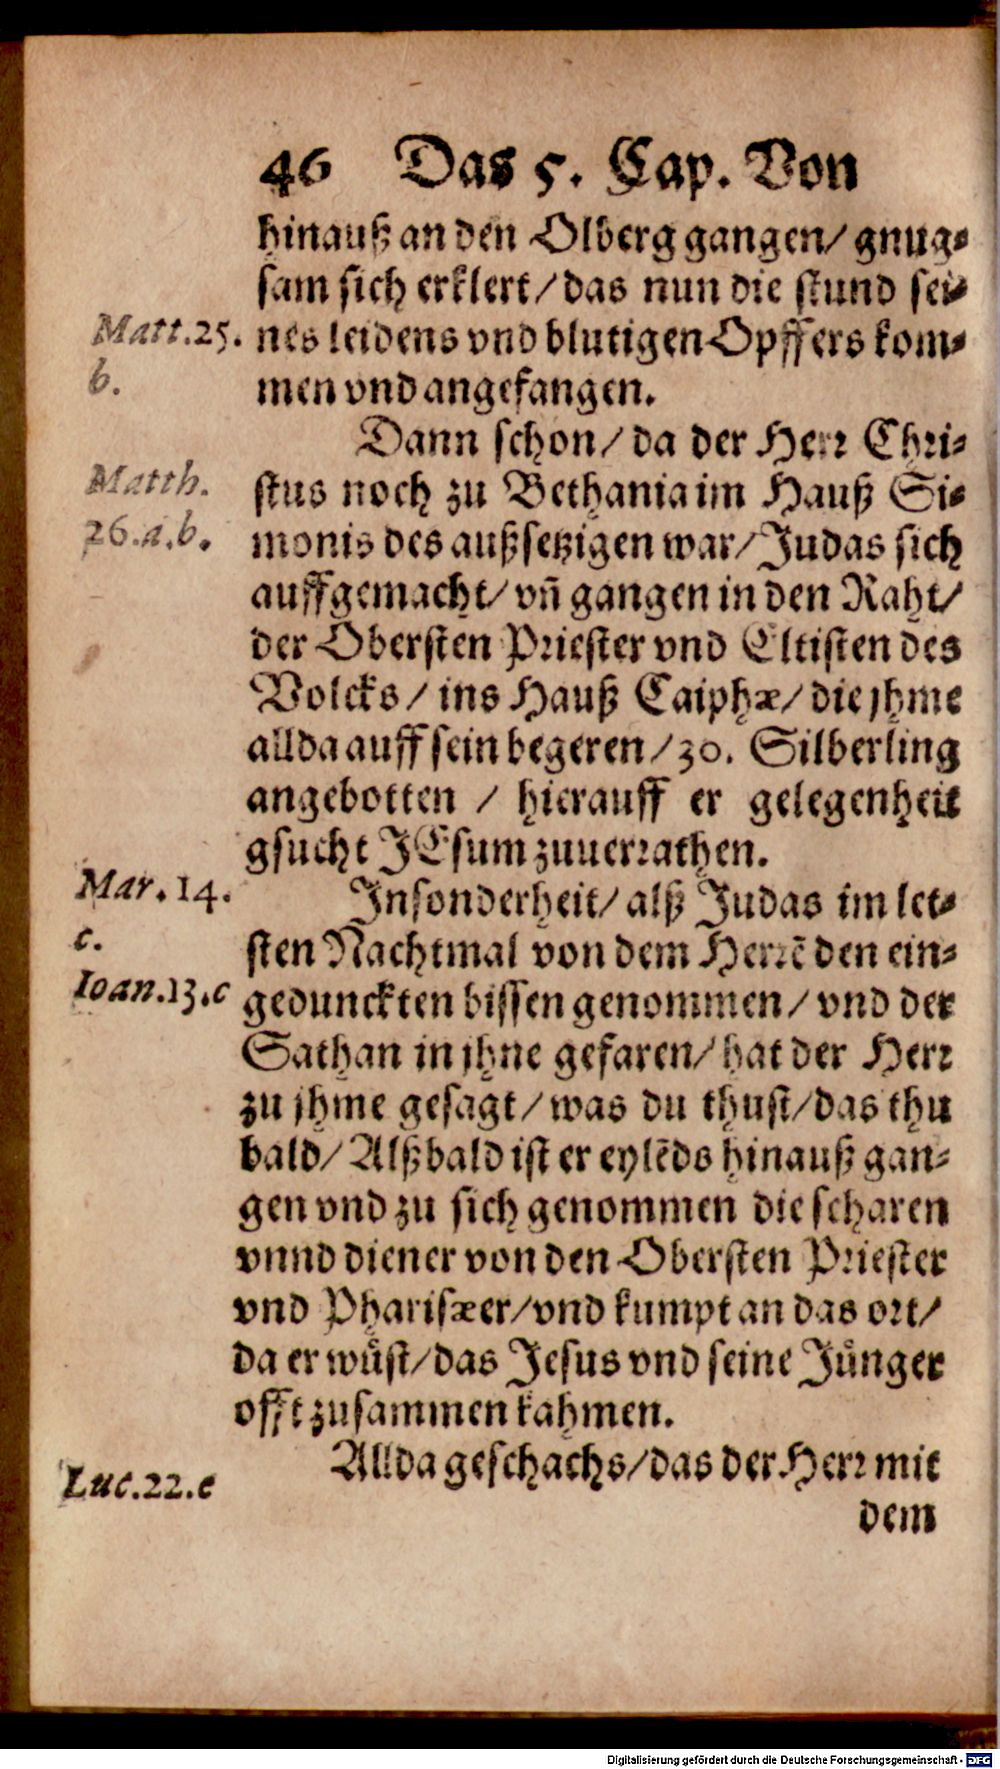 46 Das 5. Cap. Von
hinauß an den Olberg gangen/ gnug-
sam sich erklert/ das nun die stund sei-
Matt.25. nes leidens vnd blutigen Opffers kom-
b. men vnd angefangen.
Dann schon/ da der Herr Chri-
Matth. stus noch zu Bethania im Hauß Si-
26.a.b. monis des außsetzigen war/ Judas sich
auffgemacht/ vñ gangen in den Raht/
der Obersten Priester vnd Eltisten des
Volcks/ ins Hauß Caiphæ/ die jhme
allda auff sein begeren/ 30. Silberling
angebotten / hierauff er gelegenheit
gsucht JEsum zuuerrathen.
Mar. 14. Insonderheit/ alß Judas im let-
c. sten Nachtmal von dem Herrē den ein-
Ioan.13.c gedunckten bissen genommen/ vnd der
Sathan in jhne gefaren/ hat der Herr
zu jhme gesagt/ was du thust/ das thu
bald/ Alßbald ist er eylēds hinauß gan-
gen vnd zu sich genommen die scharen
vnnd diener von den Obersten Priester
vnd Pharisæer/ vnd kumpt an das ort/
da er wuͤst/ das Jesus vnd seine Juͤnger
offt zusammen kahmen.
Luc.22.e Allda geschachs/ das der Herr mit
dem
Digitalisierung gefördert durch die Deutsche Forschungsgemeinschaft - DFG